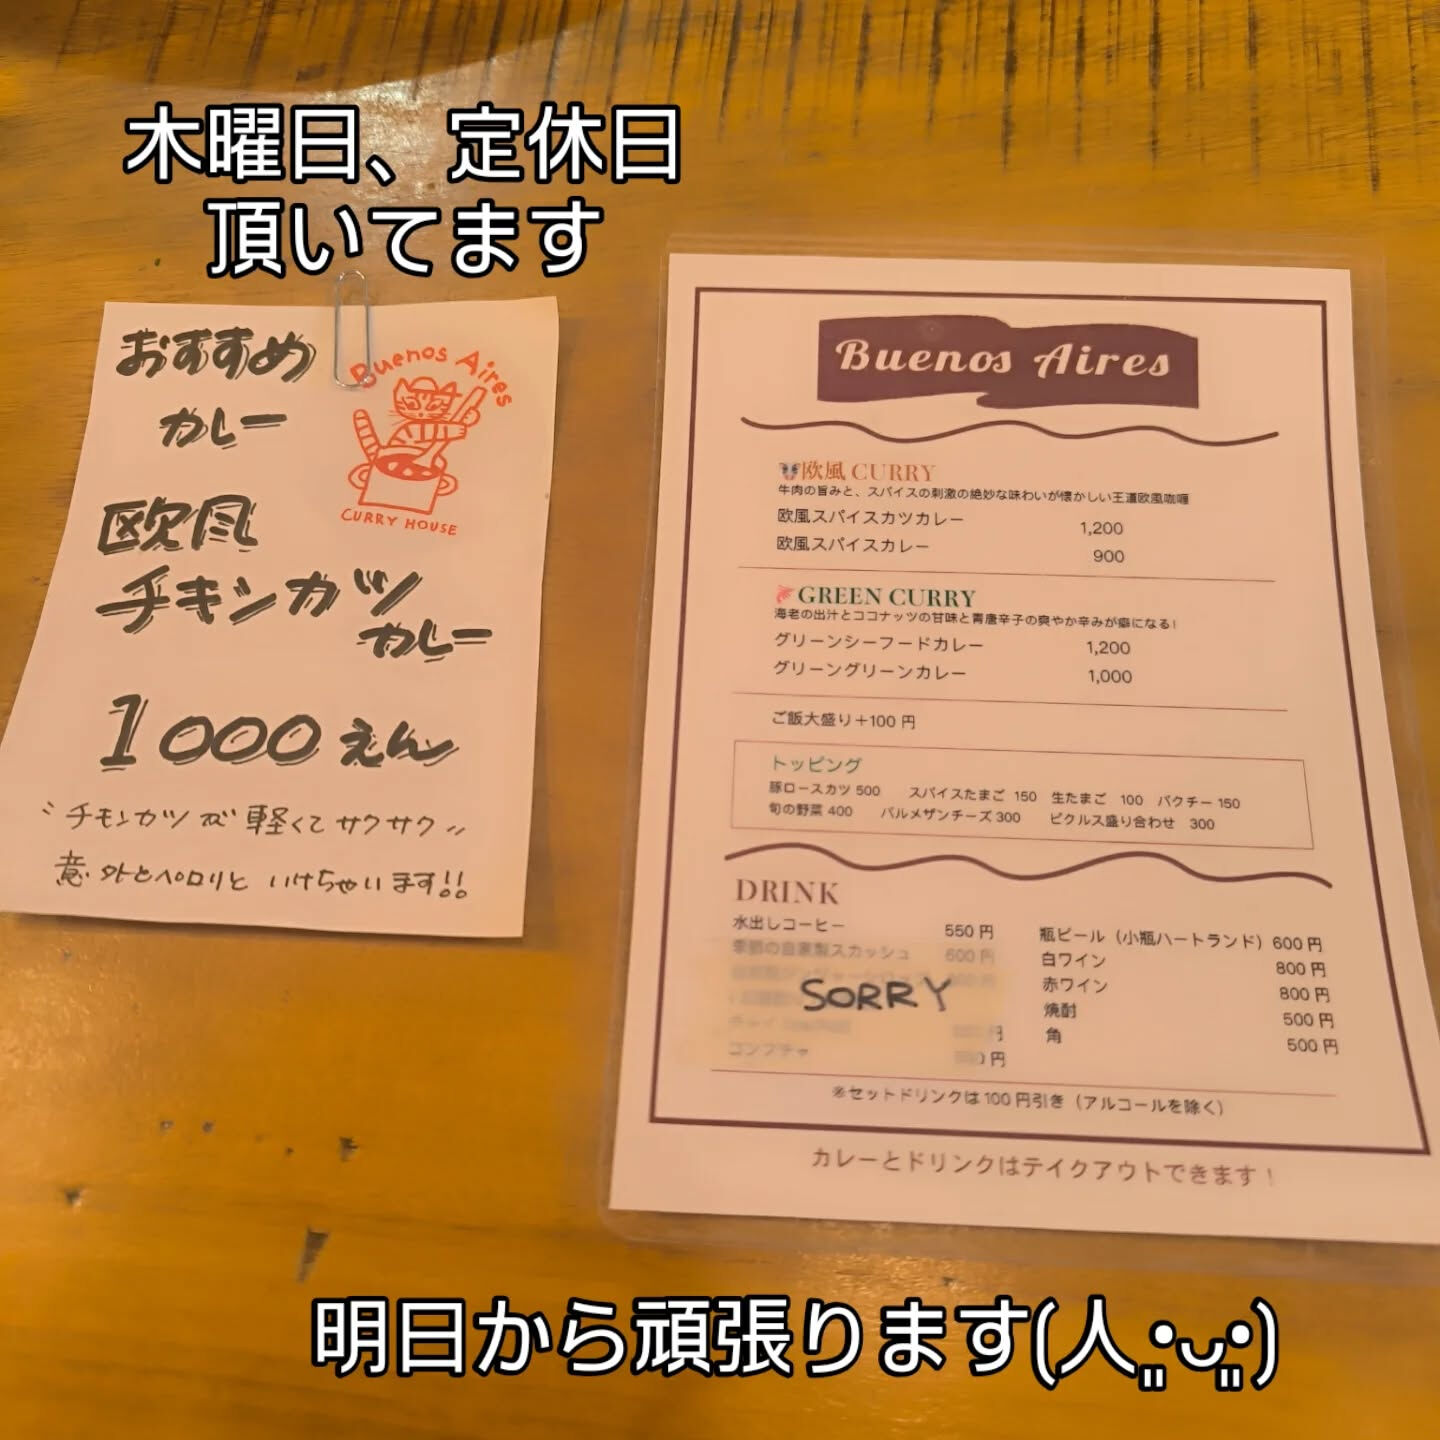 木曜日、定休日
頂いてます
おすすめ
カレー
Buenos Aires
CURRY HOUSE
欧風
チキンカツ
カレー
1000えん
チキンカツが軽くてサクサク
意外とペロリといけちゃいます!!
Buenos Aires
欧風 CURRY
牛肉の旨みと、スパイスの刺激の絶妙な味わいが懐かしい王道欧風咖喱
欧風スパイスカツカレー 1,200
欧風スパイスカレー 900
GREEN CURRY
海老の出汁とココナッツの甘味と青唐辛子の爽やか辛みが癖になる!
グリーンシーフードカレー 1,200
グリーングリーンカレー 1,000
ご飯大盛り+100 円
トッピング
豚ロースカツ 500 スパイスたまご 150 生たまご 100 パクチー 150
旬の野菜 400 パルメザンチーズ 300 ピクルス盛り合わせ 300
DRINK
水出しコーヒー 550 円
季節の自家製スカッシュ 600 円
SORRY
チャイ 円
コンブチャ 円
瓶ビール（小瓶ハートランド）600 円
白ワイン 800 円
赤ワイン 800 円
焼酎 500 円
角 500 円
※セットドリンクは 100 円引き（アルコールを除く）
カレーとドリンクはテイクアウトできます！
明日から頑張ります(人 •͈ᴗ•͈)